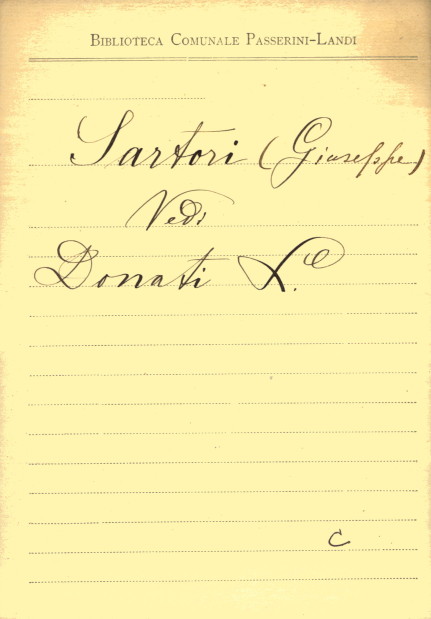 BIBLIOTECA COMUNALE PASSERINI-LANDI
Sartori (Giuseppe)
Vedi
Donati
C